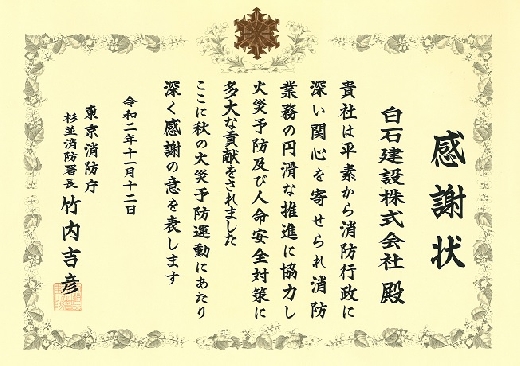 感謝状
白石建設株式会社 殿
貴社は平素から消防行政に
深い関心を寄せられ消防
業務の円滑な推進に協力し
火災予防及び人命安全対策に
多大な貢献をされました
ここに秋の火災予防運動にあたり
深く感謝の意を表します
令和二年十一月十二日
東京消防庁
杉並消防署長 竹内吉彦